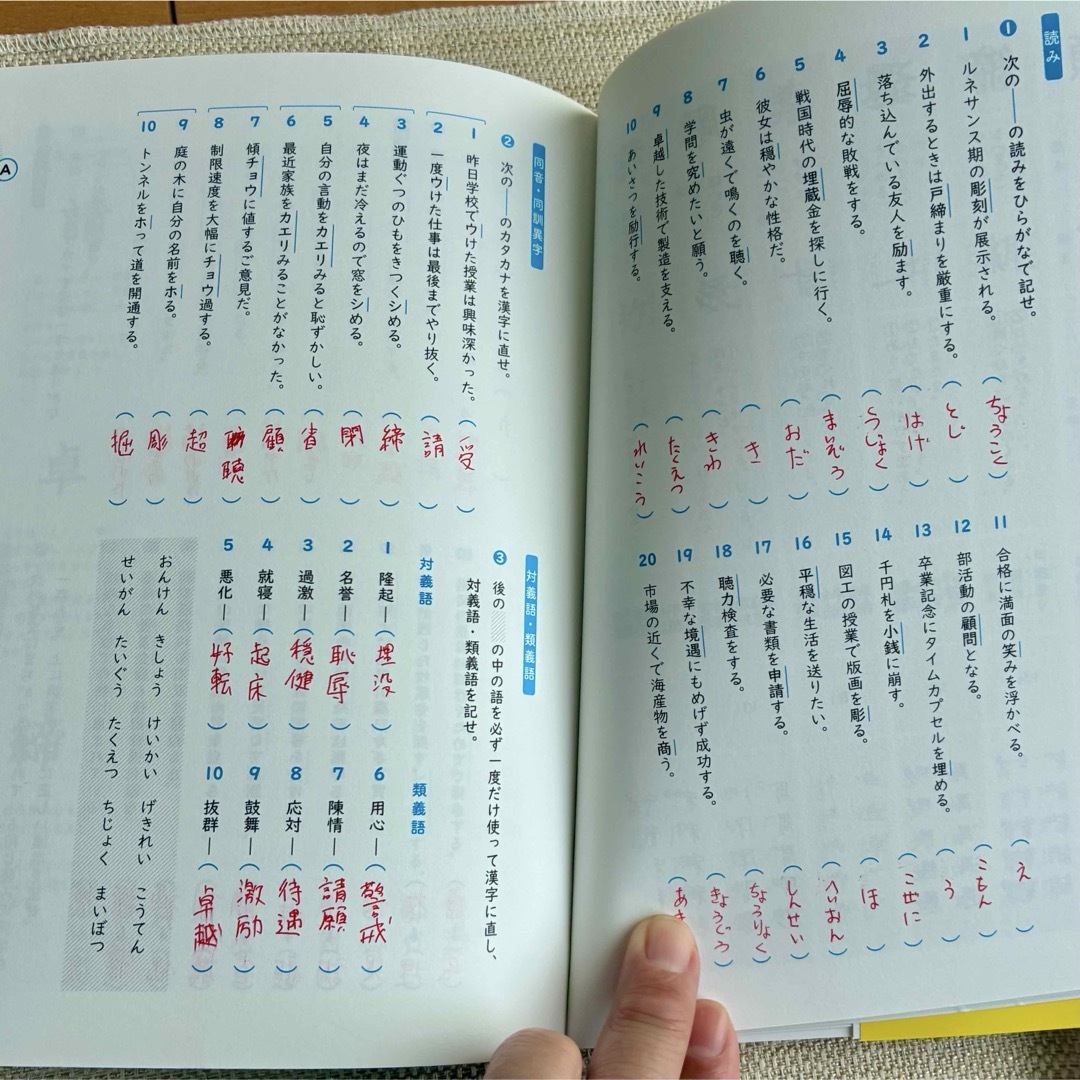 読み
❶ 次の――の読みをひらがなで記せ。
1 ルネサンス期の彫刻が展示される。（ちょうこく）
2 外出するときは戸締まりを厳重にする。（とじ）
3 落ち込んでいる友人を励ます。（はげ）
4 屈辱的な敗戦をする。（くつじょく）
5 戦国時代の埋蔵金を探しに行く。（まいぞう）
6 彼女は穏やかな性格だ。（おだ）
7 虫が遠くで鳴くのを聴く。（き）
8 学問を究めたいと願う。（きわ）
9 卓越した技術で製造を支える。（たくえつ）
10 あいさつを励行する。（れいこう）
11 合格に満面の笑みを浮かべる。（え）
12 部活動の顧問となる。（こもん）
13 卒業記念にタイムカプセルを埋める。（う）
14 千円札を小銭に崩す。（こぜに）
15 図工の授業で版画を彫る。（ほ）
16 平穏な生活を送りたい。（へいおん）
17 必要な書類を申請する。（しんせい）
18 聴力検査をする。（ちょうりょく）
19 不幸な境遇にもめげず成功する。（きょうぐう）
20 市場の近くで海産物を商う。（あき
同音・同訓異字
❷ 次の――のカタカナを漢字に直せ。
1 昨日学校でウけた授業は興味深かった。（受）
2 一度ウけた仕事は最後までやり抜く。（請）
3 運動ぐつのひもをきつくシめる。（締）
4 夜はまだ冷えるので窓をシめる。（閉）
5 自分の言動をカエリみると恥ずかしい。（省）
6 最近家族をカエリみることがなかった。（顧）
7 傾チョウに値するご意見だ。（聴）
8 制限速度を大幅にチョウ過する。（超）
9 庭の木に自分の名前をホる。（彫）
10 トンネルをホって道を開通する。（掘）
対義語・類義語
❸ 後の の中の語を必ず一度だけ使って漢字に直し、
対義語・類義語を記せ。
対義語
1 隆起―（埋没）
2 名誉―（恥辱）
3 過激―（穏健）
4 就寝―（起床）
5 悪化―（好転）
類義語
6 用心―（警戒）
7 陳情―（請願）
8 応対―（待遇）
9 鼓舞―（激励）
10 抜群―（卓越）
おんけん きしょう けいかい げきれい こうてん
せいがん たいぐう たくえつ ちじょく まいぼつ
A